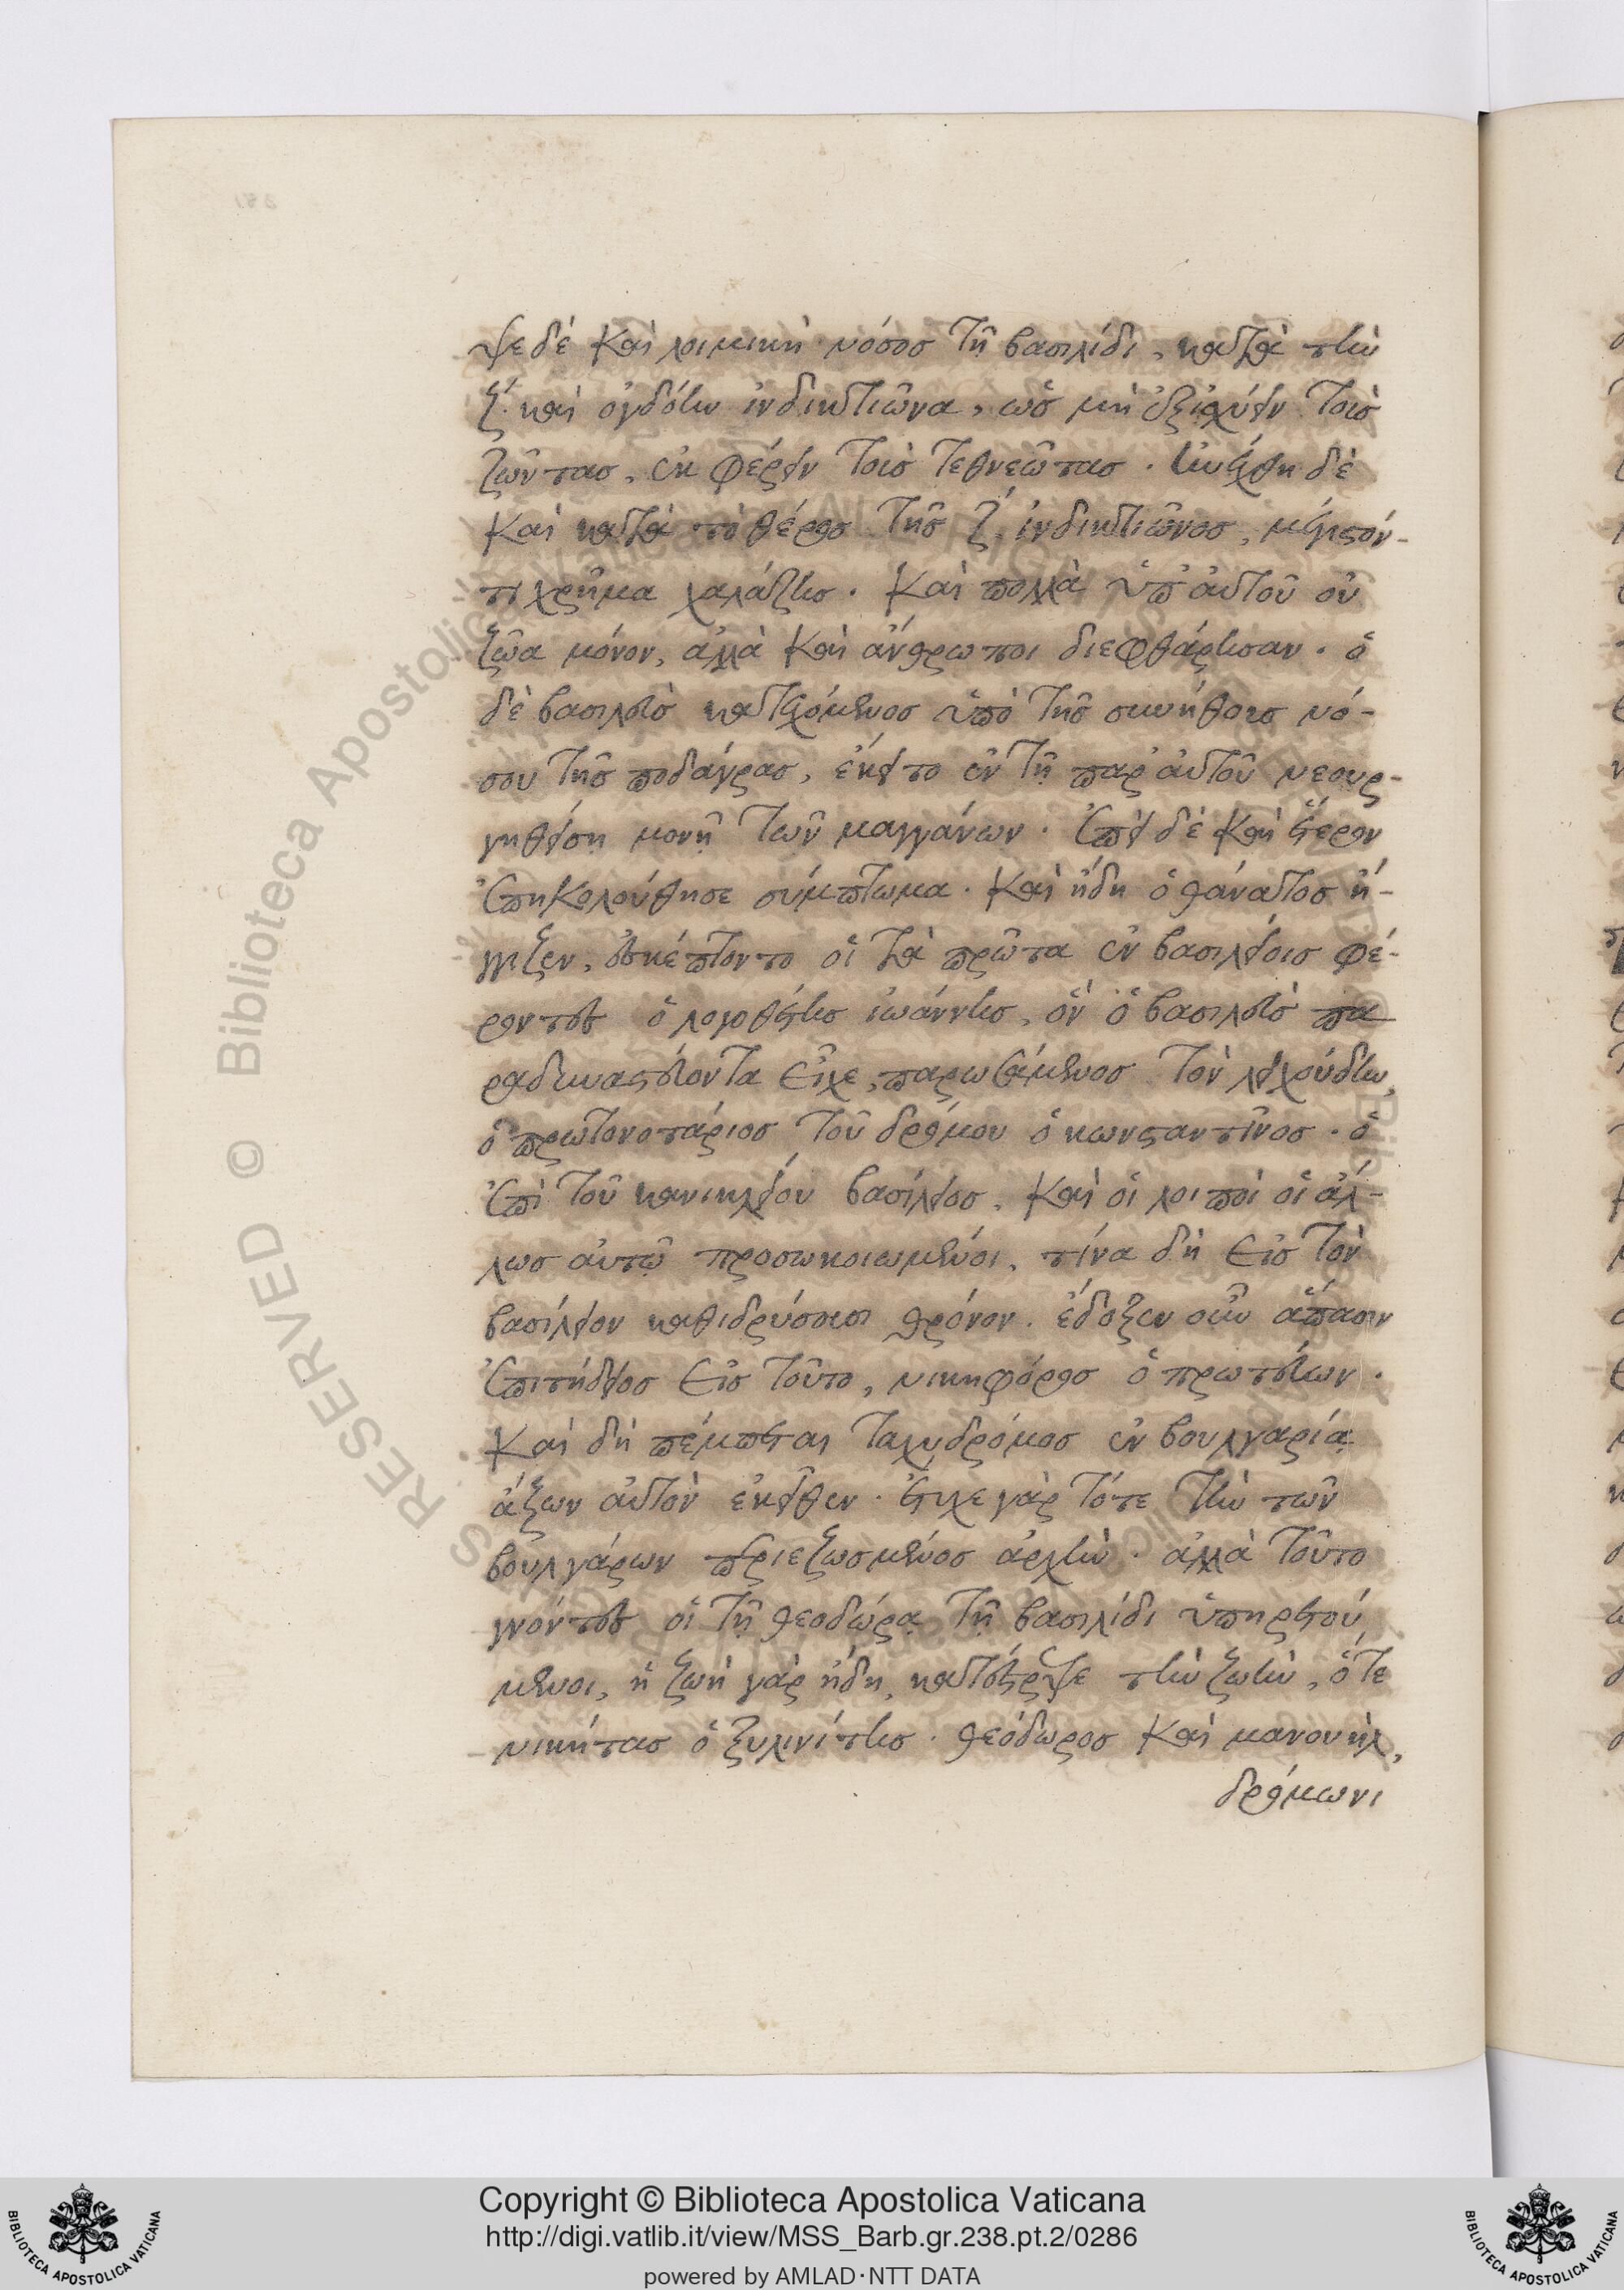 ψε δὲ καὶ λοιμικὴ νόσος τῇ βασιλίδι, κατὰ τὴν
ζ´. καὶ ὀγδόην ἰνδικτιῶνα, ὡς μὴ ἐξισχύειν τοὺς
ζῶντας, ἐκφέρειν τοὺς τεθνεῶτας. ἠνέχθη δὲ
καὶ κατὰ τὸ θέρος τῆς ζ´, ἰνδικτιῶνος, μέγιστόν-
τι χρῆμα χαλάζης. καὶ πολλὰ ὑπ' αὐτοῦ οὐ
ζῶα μόνον, ἀλλὰ καὶ ἄνθρωποι διεφθάρησαν. ὁ
δὲ βασιλεὺς κατεχόμενος ὑπὸ τῆς συνήθους νό-
σου τῆς ποδάγρας, ἔκειτο ἐν τῇ παρ' αὐτοῦ νεουρ-
γηθείσῃ μονῇ τῶν μαγγάνων. ἐπεὶ δὲ καὶ ἕτερον
ἐπηκολούθησε σύμπτωμα. καὶ ἤδη ὁ θάνατος ἤ-
γγιζεν, ἐσκέπτοντο οἱ τὰ πρῶτα ἐν βασιλείοις φέ-
ροντες ὁ λογοθέτης ἰωάννης, ὃν ὁ βασιλεὺς πα
ραδυναστεύοντα εἶχε, παρωσάμενος τὸν λειχούδην,
ὁ πρωτονοτάριος τοῦ δρόμου ὁ κωνσταντῖνος. ὁ
ἐπὶ τοῦ κανικλείου βασίλειος. καὶ οἱ λοιποὶ οἱ ἄλ-
λως αὐτῷ προσωκοιωμένοι, τίνα δὴ εἰς τὸν
βασίλειον καθιδρύσουσι θρόνον. ἔδοξεν οὖν ἅπασιν
ἐπιτήδειος εἰς τοῦτο, νικηφόρος ὁ πρωτεύων.
καὶ δὴ πέμπεται ταχυδρόμος ἐν βουλγαρίᾳ
ἄξων αὐτὸν ἐκεῖθεν. ἔτυχε γὰρ τότε τὴν τῶν
βουλγάρων περιεζωσμένος ἀρχὴν. ἀλλὰ τοῦτο
γνόντες οἱ τῇ θεοδώρᾳ τῇ βασιλίδι ὑπηρετού
μενοι, ἡ ζωὴ γὰρ ἤδη, κατέστρεψε τὴν ζωὴν, ὅ τε
νικήτας ὁ ξυλινίτης. θεόδωρος καὶ μανουὴλ,
δρόμωνι
Copyright © Biblioteca Apostolica Vaticana
http://digi.vatlib.it/view/MSS_Barb.gr.238.pt.2/0286
powered by AMLAD·NTT DATA